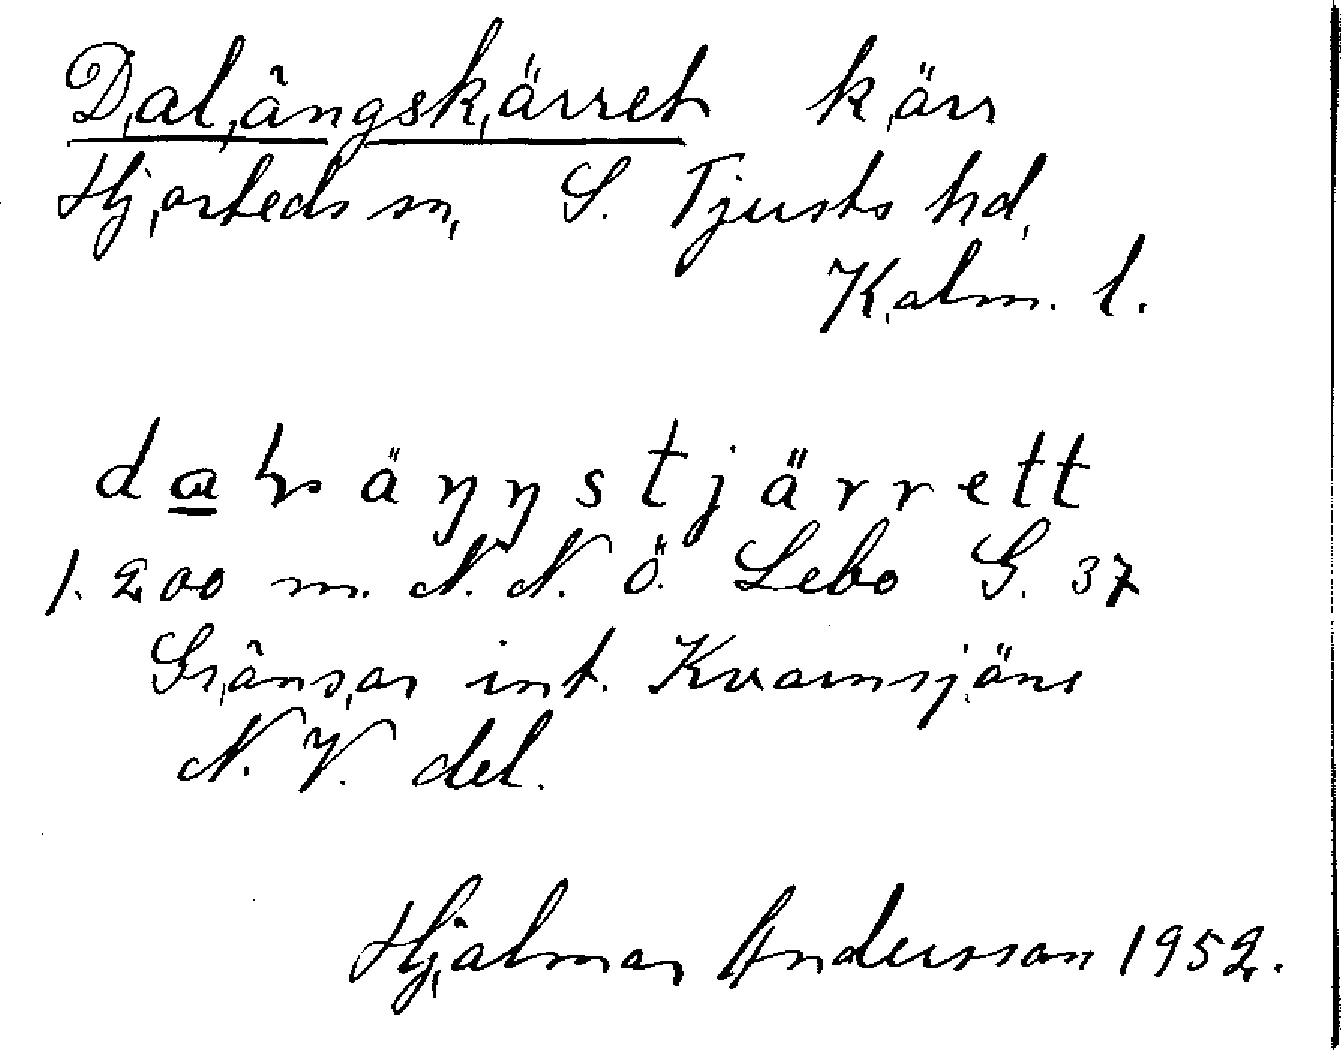 Dalängskärret kärr
Hjorteds sn, S. Tjusts hd.
Kalm. l.
daɽäŋŋstjärrett
1.200 m. N. N. Ö. Lebo G. 37
Gränsar int. Kvarnsjöns
N. V. del.
Hjalmar Andersson 1952.